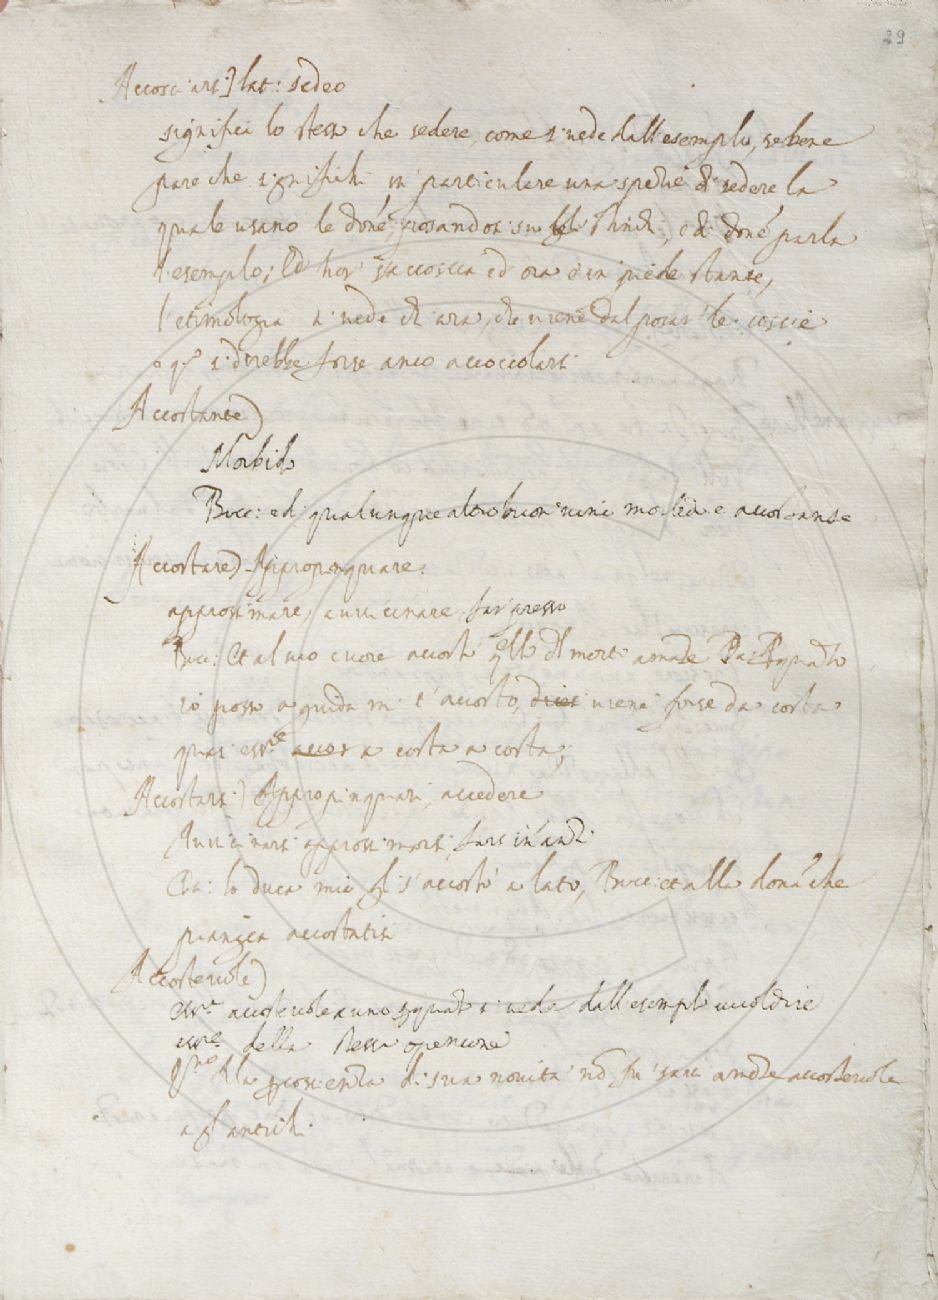 29
Accosciarsi] lat: sedeo
significa lo stesso che sedere, come si vede dall'esemplo, sebene
pare che significhi in particulare una spetie di sedere la
quale usano le done, posandosi su li , e di done parla
l'esemplo; Ed hor' s'accoscia ed ora è in piede stante,
l'etimologia si vede chiara, che viene dal posar' le coscie
o qsi si direbbe forse anco accoccolarsi
Accostante)
Morbido
Bocc: ed qualunque altro buon' vino morbido e accostante
Accostare) Appropinquare.
approssimare, avvicinare far' presso
Bocc: Et al suo cuore accostò del morto amante Pa:
io posso a guida mi t'accosto, viene forse da costa
quasi essre accos a costa a costa;
Accostarsi) Appropinquari, accedere
Avvicinarsi approssimarsi, farsi inanzi
Da: lo duca mio gli s'accostò a lato, Bocc: et alla dona che
piangea accostatisi
Accostevole)
essre accostevole a uno qquanto si vede dall'esemplo vuol dire
essre della stessa openione
della prosienza di sua novità nō fu sarà accostevole
a gl'antichi.